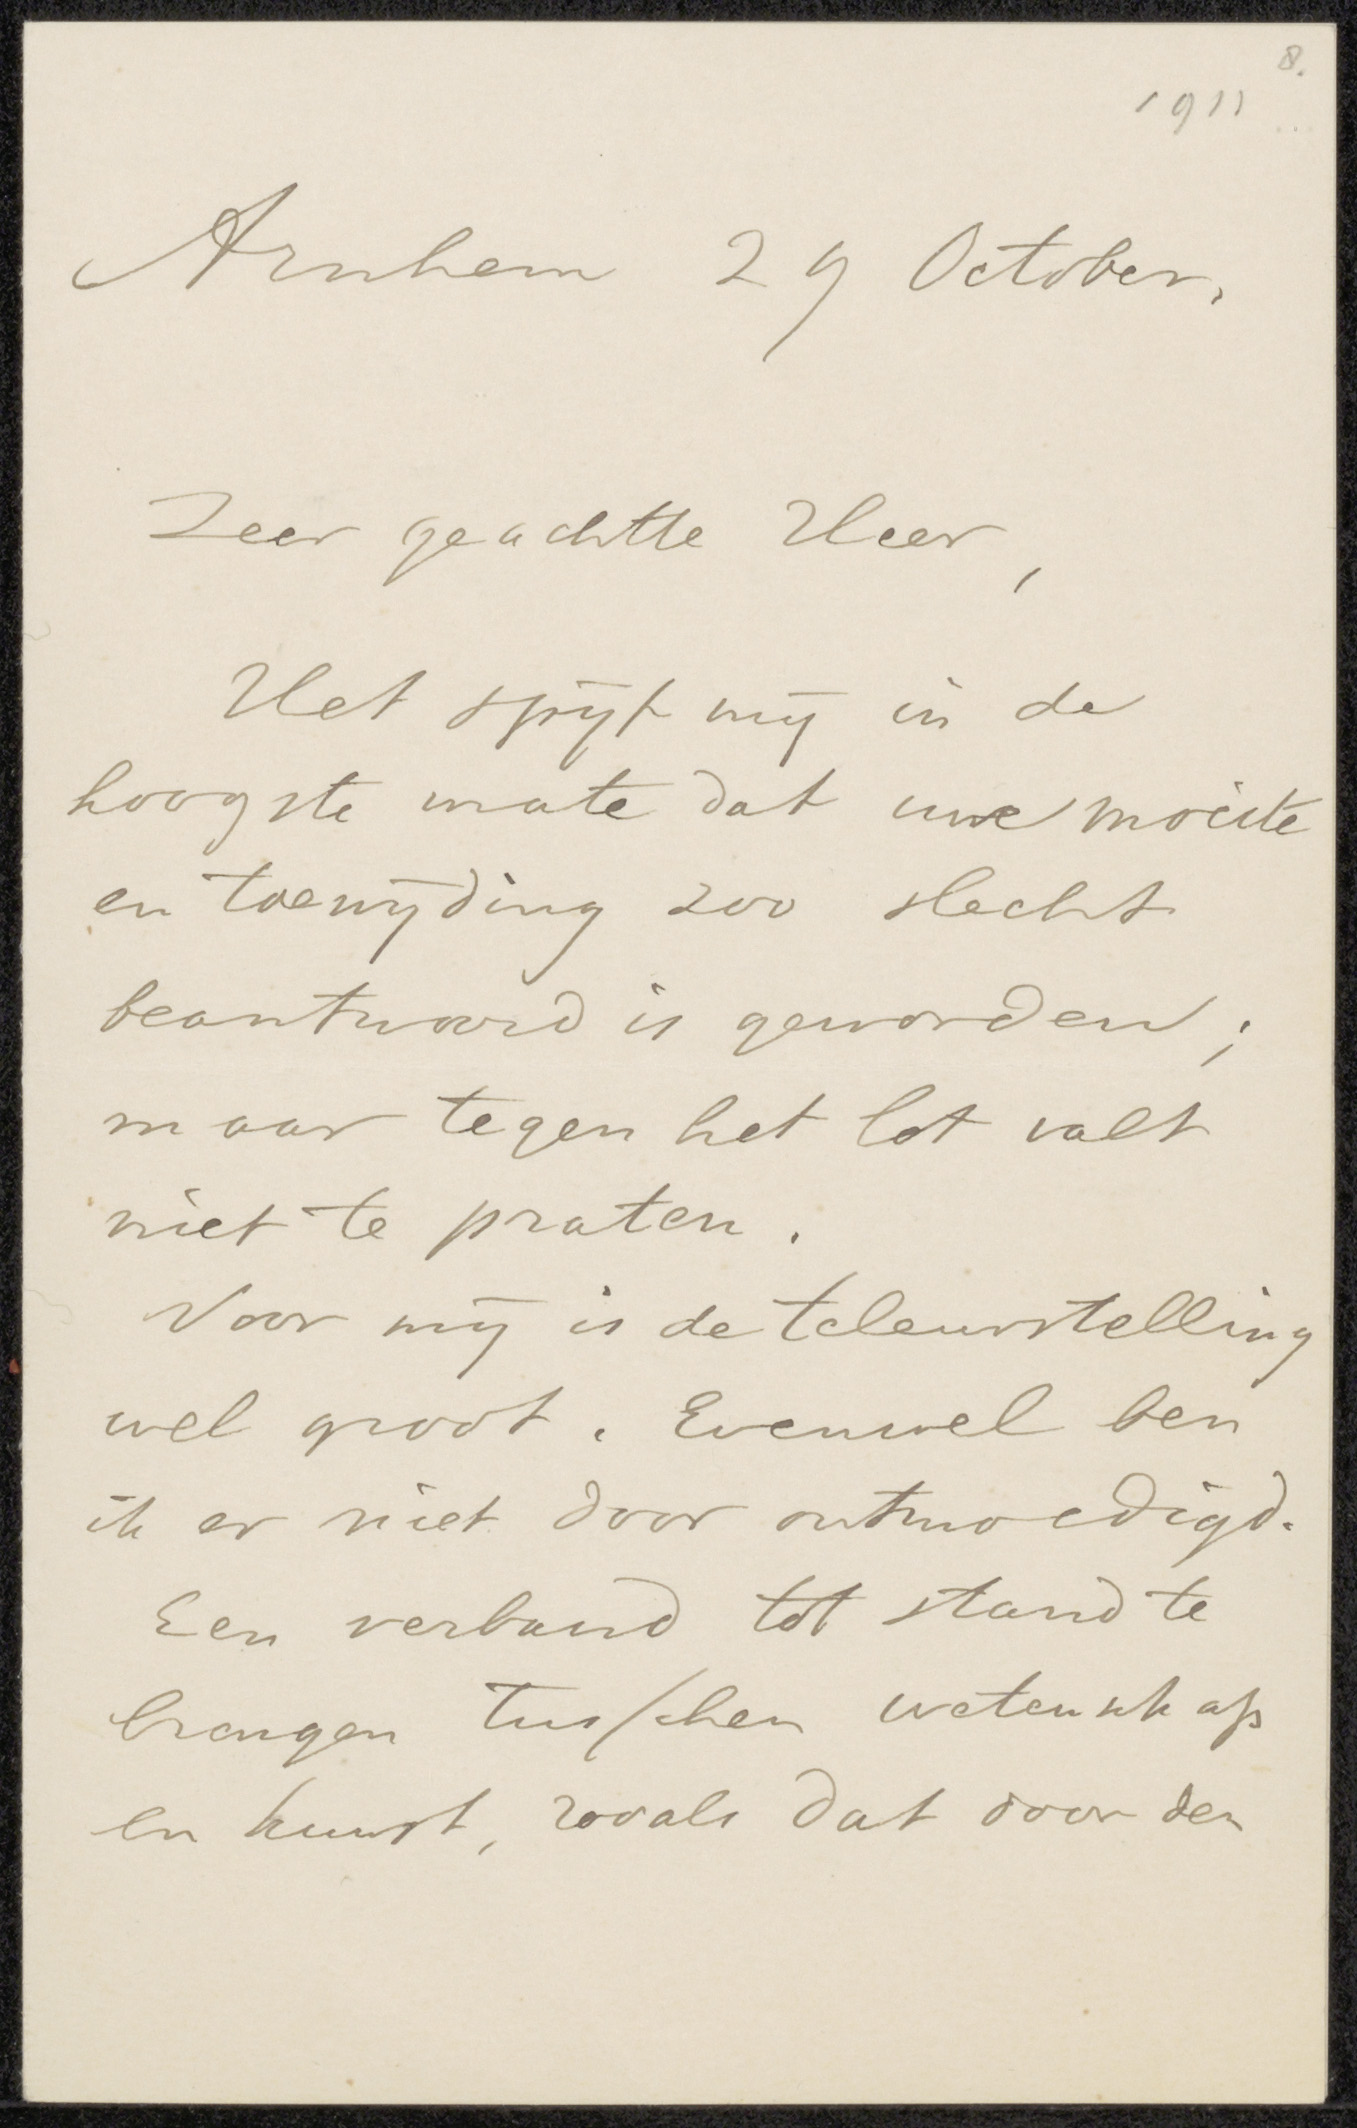 8.
1911
Arnhem 29 October.
Zeer geachtte Heer,
Het spijt mij in de
hoogste mate dat uwe moeite
en toewijding zoo slecht
beantwoord is geworden;
maar tegen het lot valt
niet te praten.
Voor mij is de teleurstelling
wel groot. Evenwel ben
ik er niet door ontmoedigd.
Een verband tot stand te
brengen tusschen wetenschap
en kunst, zooals dat door den